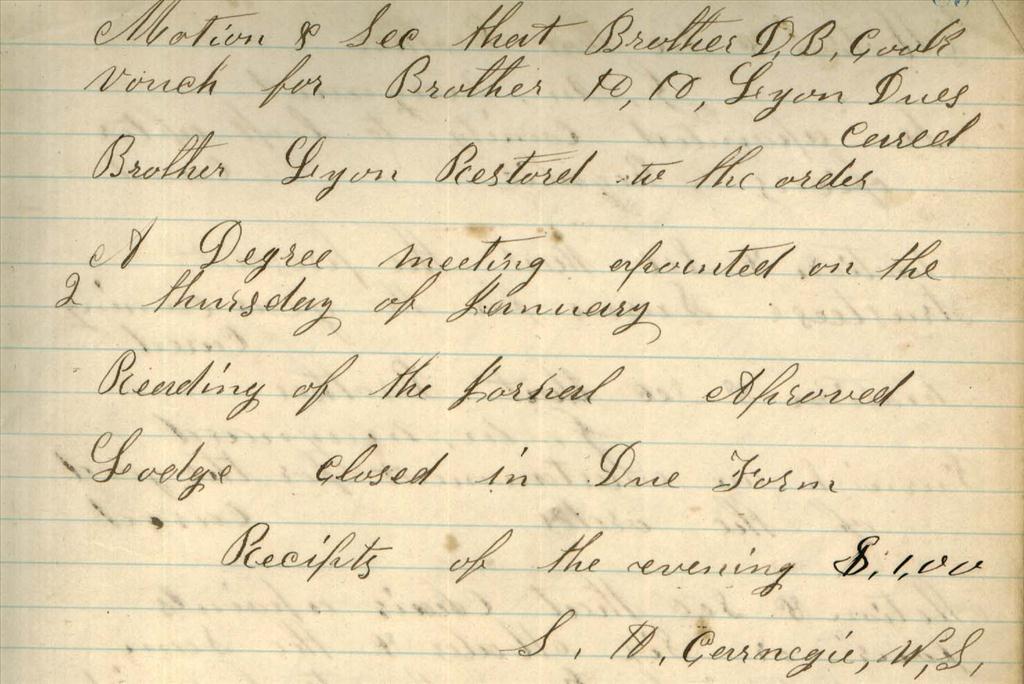 Motion & Sec that Brother D, B, Cook
vouch for Brother H, H, Lyon Dues
Caried
Brother Lyon Restord to the order
A Degree meeting apointed on the
2 thursday of January
Reading of the Jornal Aproved
Lodge Closed in Due Form
Recipts of the evening $, 1,00
S, H, Carnegie, W, S,